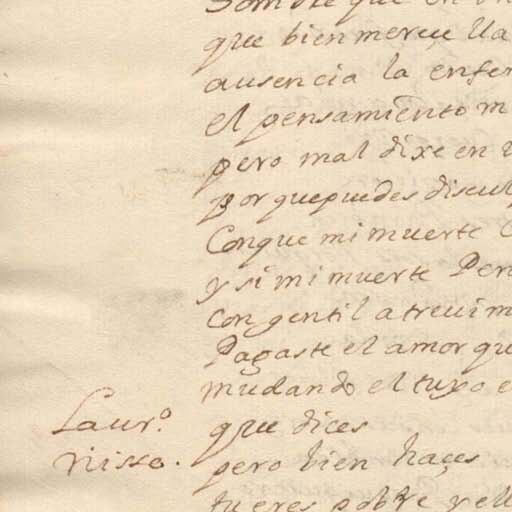 que bien merece
ausencia la
el pensamiento
pero mal dixe en
por que puedes
Conque mi muerte
y si mi muerte
con gentil
Pagaste el amor
mudando el tuyo
Laur.º que dices
Nisse. pero bien haçes
tu eres pobre y